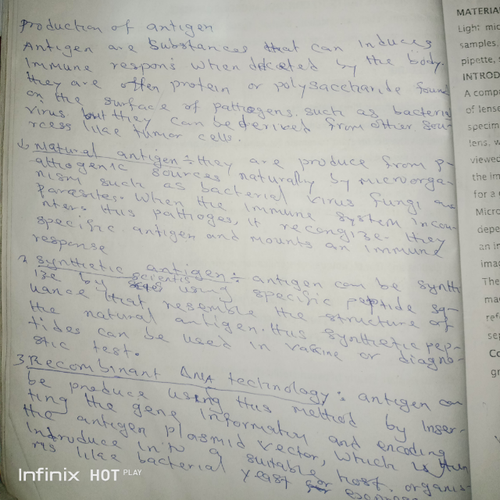 production of antigen
Antigen are substances that can induces
immune respons when detected by the body.
they are often protein or polysaccharide found
on the surface of pathogens. such as bacteria
virus. but they can be derived from other sou-
rces like tumor cells.
1. Natural antigen :- they are produce from p-
athogenic sources naturally by microorga-
nism such as bacterial virus fungi and
Parasites. When the immune system incou-
nters this pathoges, it recongize they
specific antigen and mounts an immune
response
2. synthetic antigen :- antigen can be synth
ize by scientist using specific peptide sq-
uance that resemble the structure of
the natural antigen. this synthetic pep-
tides can be used in vaccine or diagno-
stic test.
3. Recombinant DNA technology : antigen can
be produce using this method by inser-
ting the gene information and encoding
the antigen plasmid vector, which is then
introduce into a suitable host. organis-
ms like bacterial yeast or
Infinix HOT PLAY
MATERIA
Light mic
samples
pipette,
INTROD
A comp
of lense
specim
lens. w
viewed
the im
for a
Micr
depe
an in
imag
The
ma
ref
sep
Co
gr